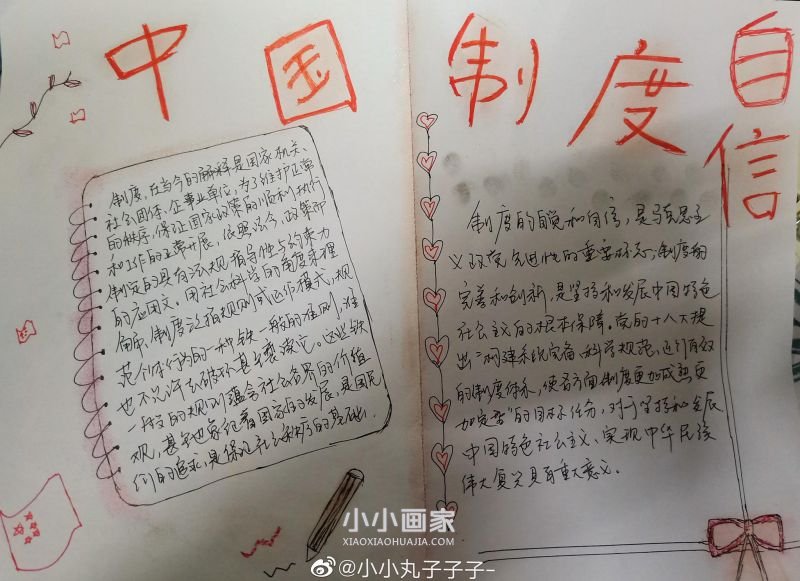 中国制度自信
制度，在当今的解释是国家机关、
社会团体、企事业单位，为了维护正常
的秩序，保证国家政策的顺利执行
和工作的正常开展，依照法令、政策而
制定的具有法规指导性与约束力
的应用文。用社会科学的角度来理
解，制度泛指规则或运作模式，规
范个体行为的一种铁一般的准则，准
也不允许去破坏甚至亵渎它。这些铁
一般的规则蕴含社会各界的价值
观，甚至也象征着国家的发展，是国民
们的追求，是保证社会秩序的基础。
制度的自觉和自信，是马克思主
义政党先进性的重要标志；制度的
完善和创新，是坚持和发展中国特色
社会主义的根本保障。党的十八大提
出“构建系统完备、科学规范、运行有效
的制度体系，使各方面制度更加成熟更
加定型”的目标任务，对于坚持和发展
中国特色社会主义、实现中华民族
伟大复兴具有重大意义。
小小画家
XIAOXIAOHUAJIA.COM
@小小丸子子子-